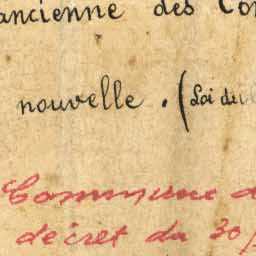 ancienne des Co
nouvelle. (Loi du
Commune d
décret du 30